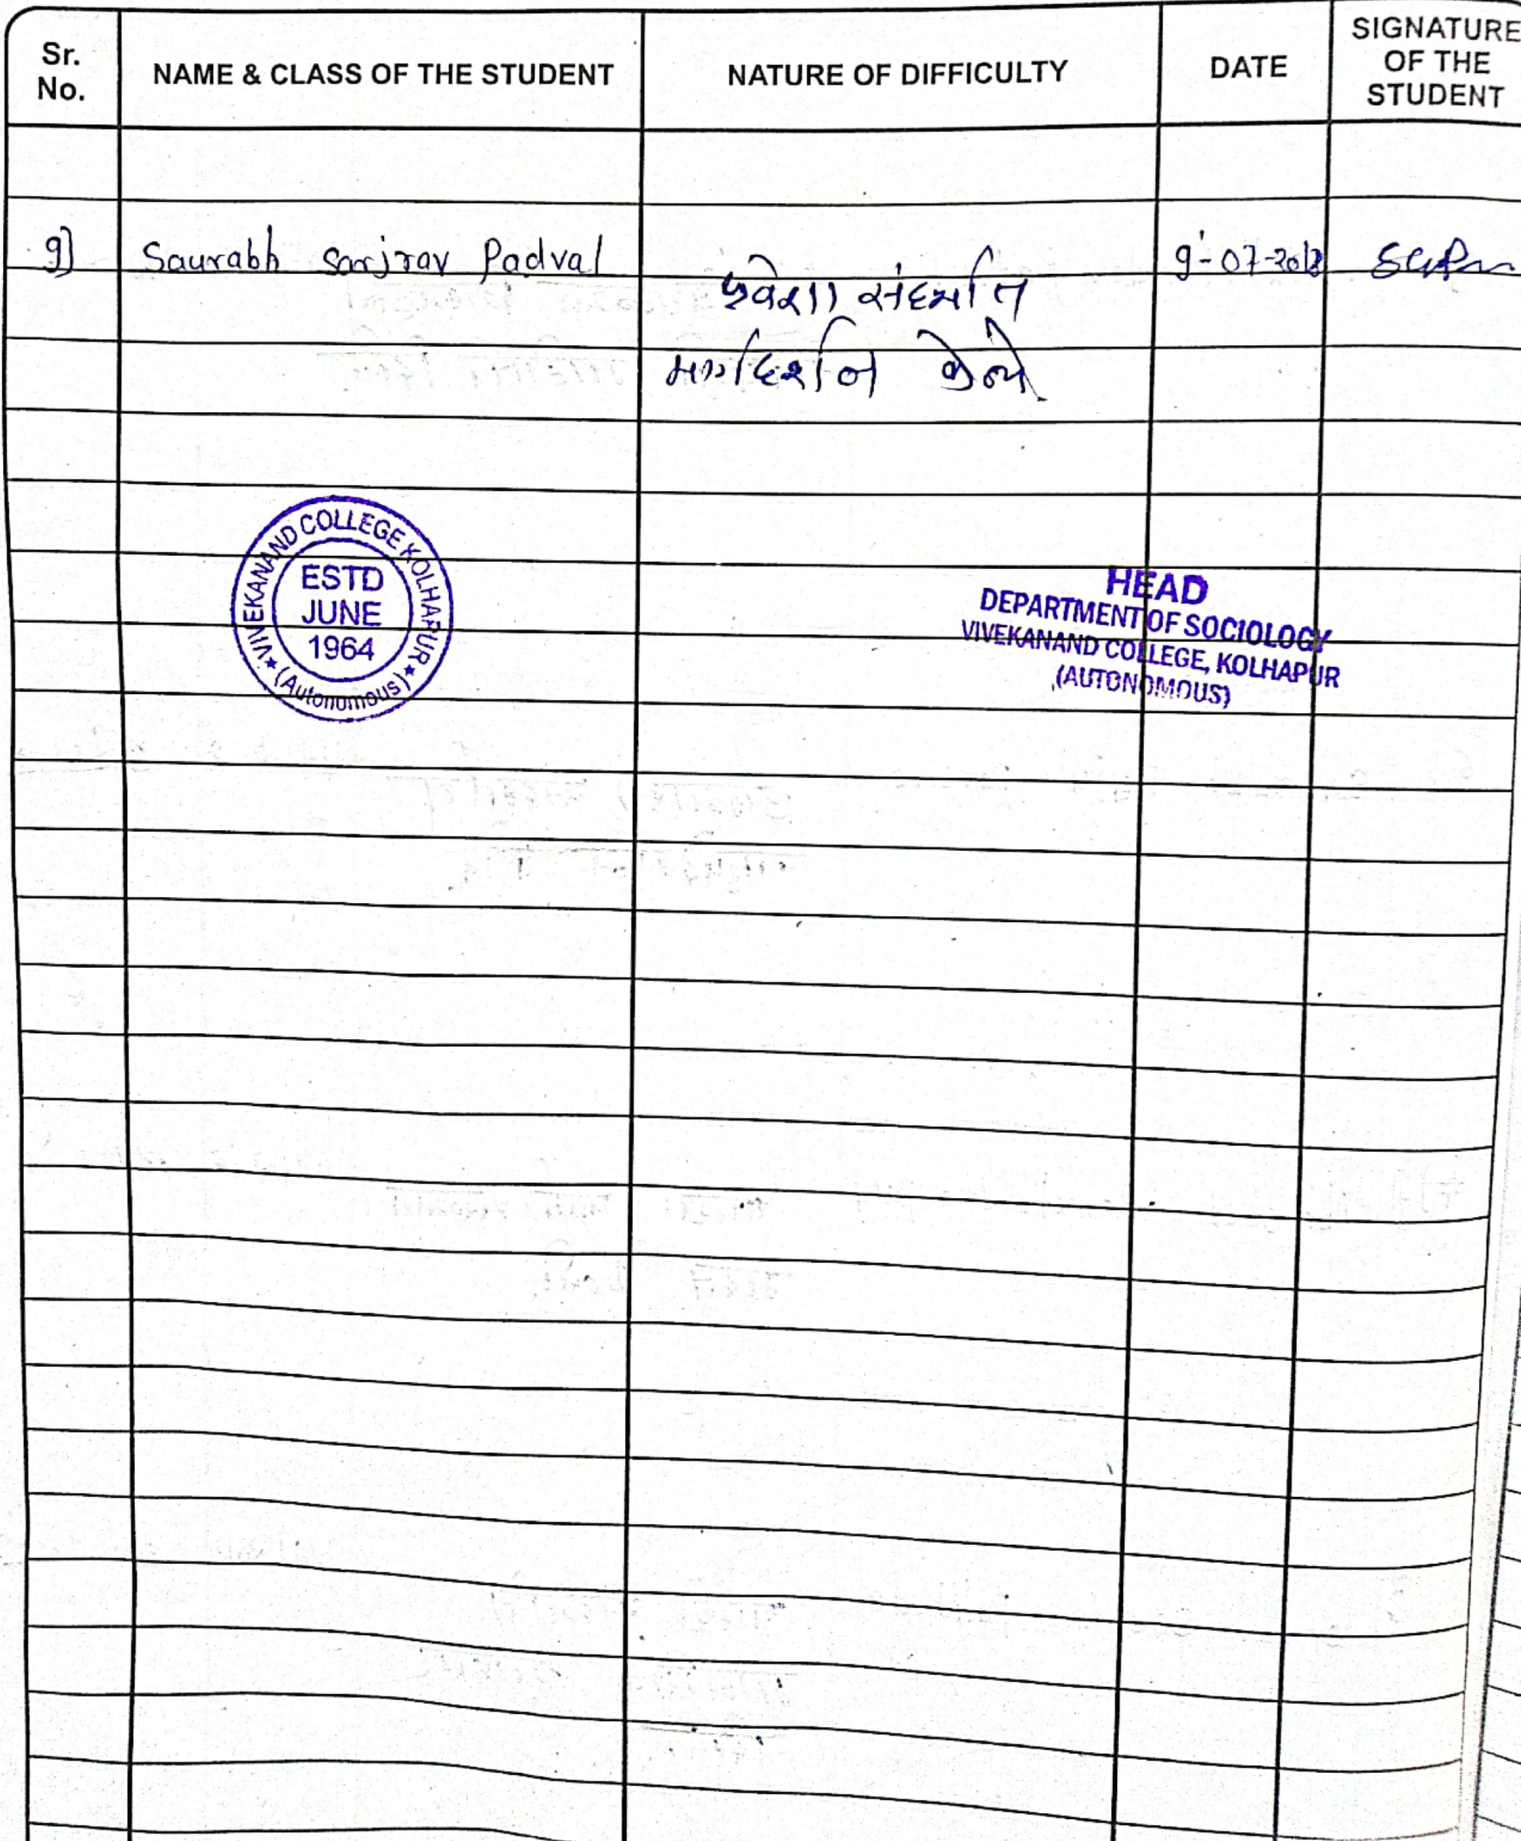 Sr. No.
NAME & CLASS OF THE STUDENT
NATURE OF DIFFICULTY
DATE
SIGNATURE OF THE STUDENT
9] Saurabh Sarjrav Padval
प्रवेशा संदर्भात
मार्गदर्शन केले.
9-07-2018
VIVEKANAND COLLEGE KOLHAPUR
(Autonomous)
ESTD
JUNE
1964
HEAD
DEPARTMENT OF SOCIOLOGY
VIVEKANAND COLLEGE, KOLHAPUR
(AUTONOMOUS)